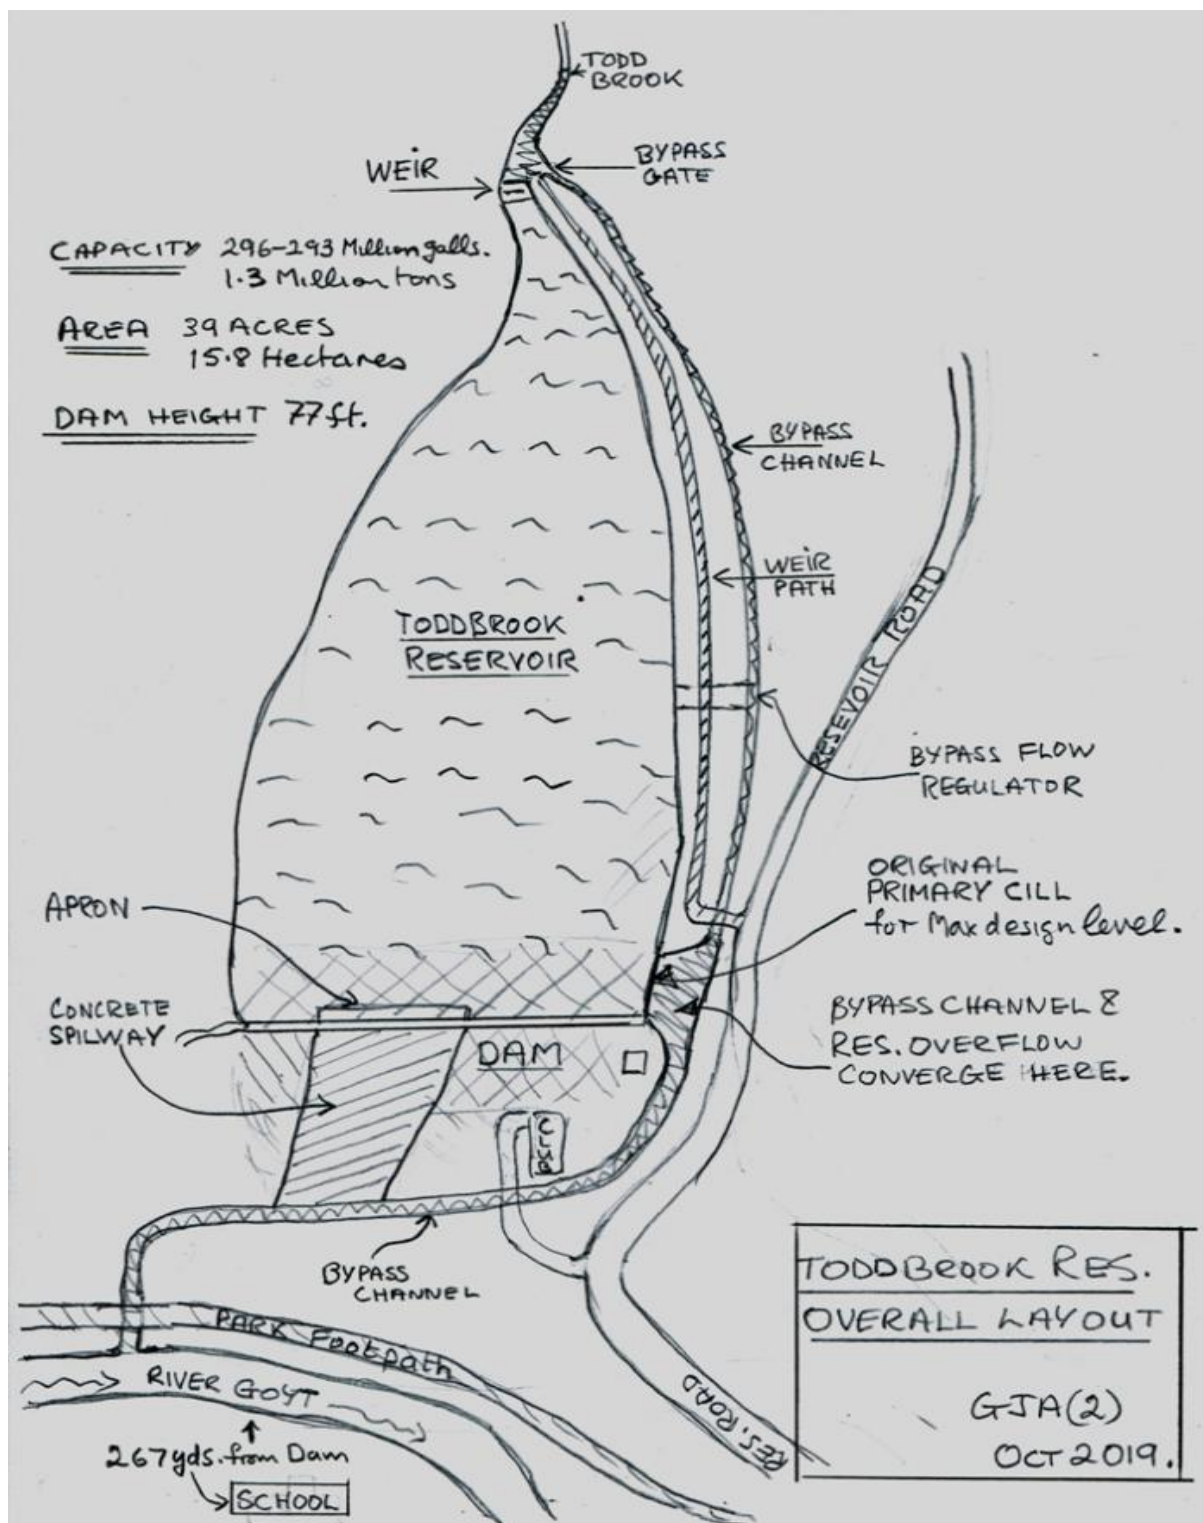 TODD
BROOK
BYPASS
GATE
WEIR
CAPACITY 296-293 Million galls.
1.3 Million tons
AREA 39 ACRES
15.8 Hectares
DAM HEIGHT 77ft.
BYPASS
CHANNEL
WEIR
PATH
RESEVOIR ROAD
TODDBROOK
RESERVOIR
BYPASS FLOW
REGULATOR
ORIGINAL
PRIMARY CILL
for Max design level.
APRON
CONCRETE
SPILWAY
DAM
BYPASS CHANNEL &
RES. OVERFLOW
CONVERGE HERE.
CLUB
BYPASS
CHANNEL
PARK Footpath
RIVER GOYT
RES. ROAD
267yds. from Dam
SCHOOL
TODDBROOK RES.
OVERALL LAYOUT
GJA(2)
OCT 2019.